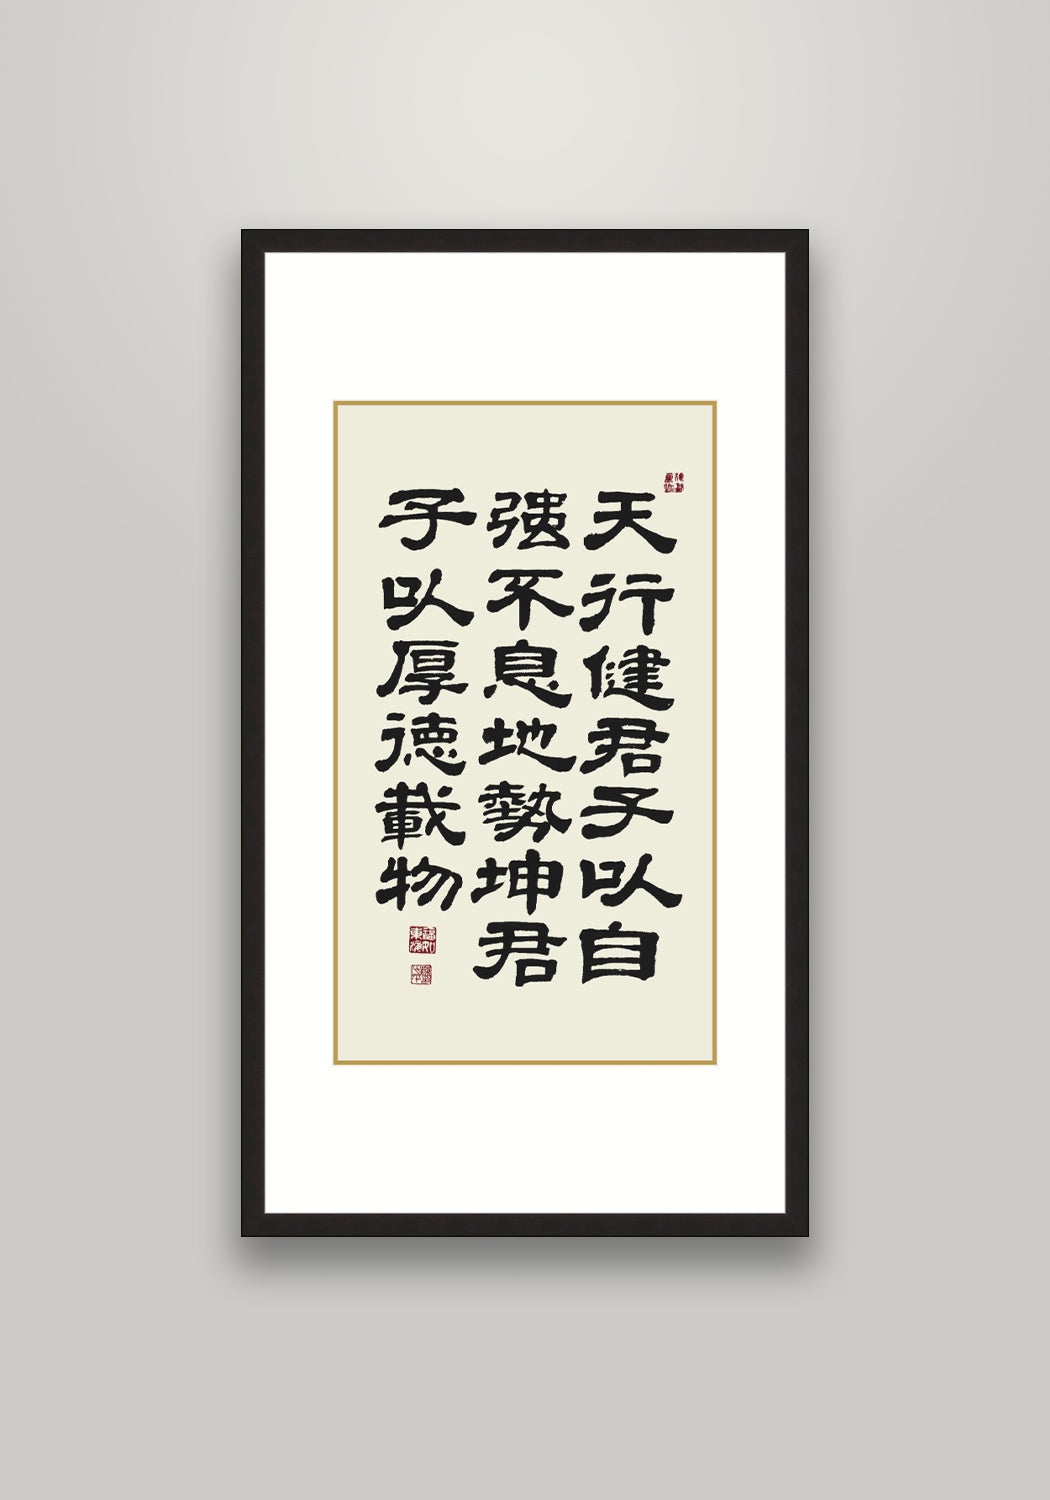 天行健君子以自
强不息地勢坤君
子以厚德載物